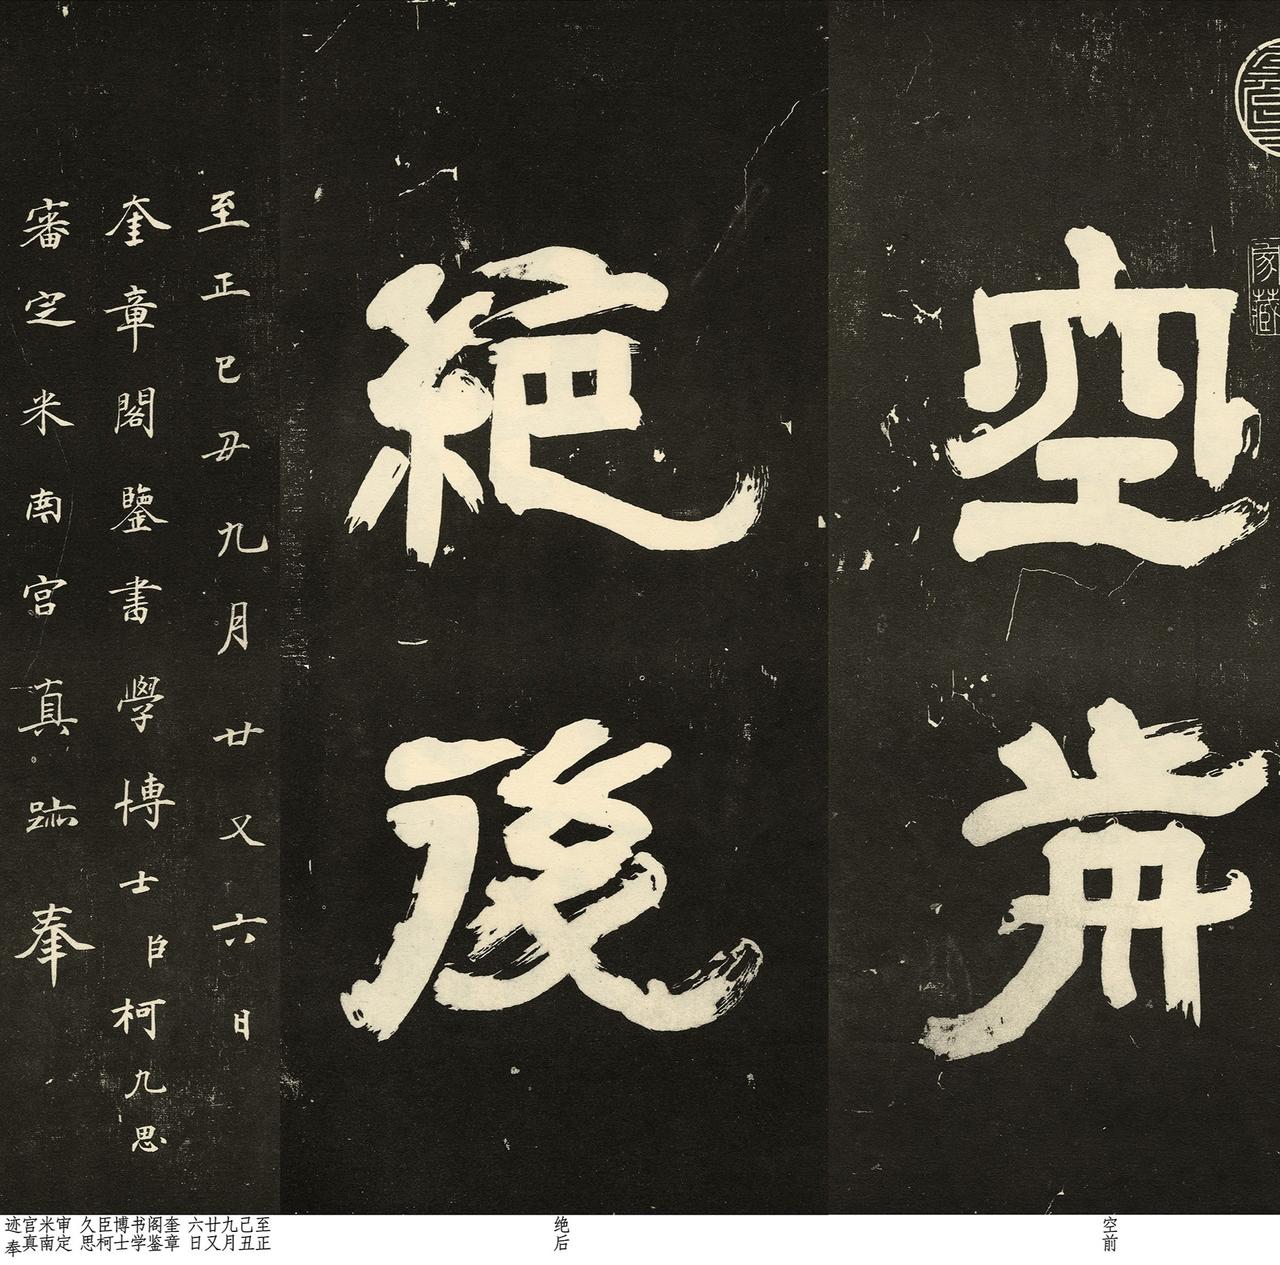 家藏
空前
絕後
至正己丑九月廿又六日
奎章閣鑒書學博士臣柯九思
審定米南宮真跡奉
空前
绝后
至正
己丑
九月
廿又
六日
奎章
阁鉴
书学
博士
臣柯
久思
审定
米南
官真
迹奉